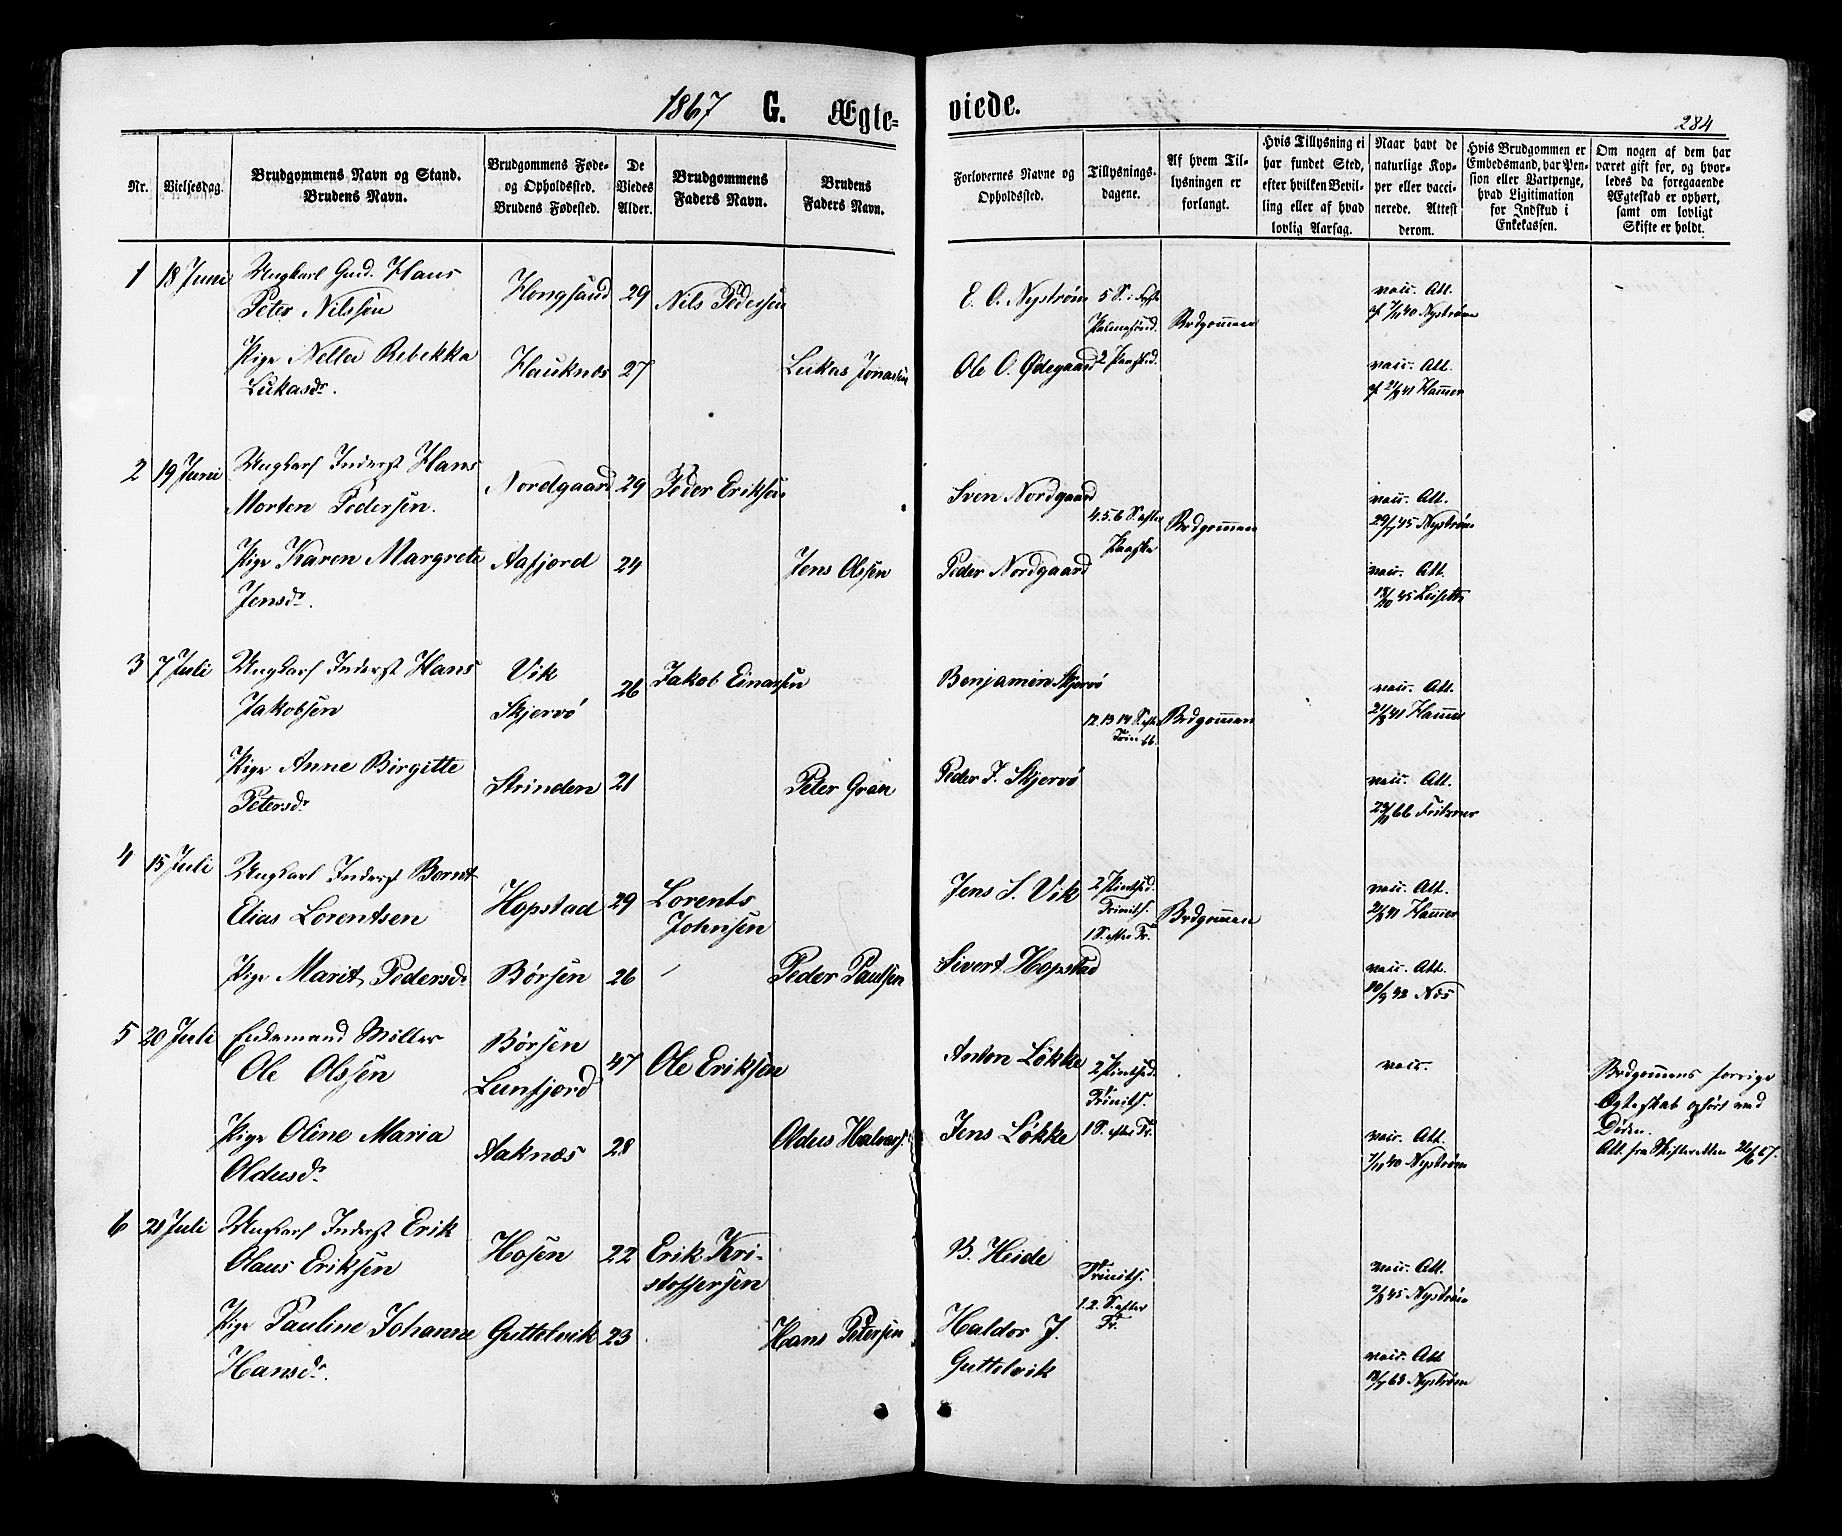 1867 G. Ægte-
viede.
284
Nr.
Vielsesdag.
Brudgommens Navn og Stand.
Brudens Navn.
Brudgommens Føde-
og Opholdssted.
Brudens Fødested.
De
Viedes
Alder.
Brudgommens
Faders Navn.
Brudens
Faders Navn.
Forlovernes Navne og
Opholdssted.
Tillysnings-
dagene.
Af hvem Til-
lysningen er
forlangt.
Hvis Tillysning ei
har fundet Sted,
efter hvilken Bevil-
ling eller af hvad
lovlig Aarsag.
Naar havt de
naturlige Kop-
per eller vacci-
nerede. Attest
derom.
Hvis Brudgommen er
Embedsmand, har Pen-
sion eller Vartpenge,
hvad Ligitimation
for Indskud i
Enkekassen.
Om nogen af dem har
været gift før, og hvor-
ledes da foregaaende
Ægteskab er ophørt,
samt om lovligt
Skifte er holdt.
1 18 Juni Ungkarl Hans
Peter Nilssen
Hongsand 29 Nils Pedersen
E. O. Nystrøm
Palmesønd.
Brdgommen
vacc. Att.
Nystrøm
Pige Nella Rebekka
Lukasdr.
Hauknes 27 Lukas Jonassen
Ole O. Ødegaard
vacc. Att.
Hammer
2 19 Juni Ungkarl Inderst Hans
Morten Pedersen.
Nordgaard 29 Peder Eriksen
Sven Nordgaard
4. 5. 6 S. efter
Paaske
Brdgommen
vacc. Att.
29/7 45 Nystrøm
Pige Karen Margrete
Jensdr.
Aafjord 24 Jens Olssen
Peder Nordgaard
vacc. Att.
18/10 45
3 7 Juli Ungkarl Inderst Hans
Jakobsen
Vik
Skjervø
26 Jakob Einarsen
Benjamin Skjervø
12. 13. 14 S. eft.
Trin. 66.
Brdgommen
vacc. Att.
21/8 41 Hammer
Pige Anne Birgitte
Petersdr
Strinden 21 Peter Gran
Peder J. Skjervø
vacc. Att.
66 Fritzner
4 15 Juli Ungkarl Inderst Bernt
Elias Lorentsen
Hopstad 29 Lorents
Johnsen
Jens S. Vik
2 Pintsed.
Trinits.
1 S. efter Tr.
Brdgommen
vacc. Att.
21/8 41 Hammer
Pige Marit Pedersdr
Børsen 26 Peder Paulsen
Sivert Hopstad
vacc. Att.
Næs
5 20 Juli Enkemand Møller
Ole Olssen
Børsen
Lenfjord
47 Ole Eriksen
Anton Løkke
2 Pintsed.
Trinits.
1 S. efter Tr.
vacc.
Brdgommens forrige
Ægteskab ophørt ved
Døden.
Att. fra Skifteretten 26/6 67.
Pige Oline Maria
Oldusdr
Aaknæs 28 Oldus Halvors.
Jens Løkke
vacc. Att.
7/11 40 Nystrøm
6 Juli Ungkarl Inderst Erik
Olaus Eriksen
Hosen 22 Erik Kri-
stoffersen
B. Heide
Trinits.
1. 2. S. efter
Tr.
vacc. Att.
45 Nystrøm
Pige Pauline Johanne
Hansdr.
Guttelvik 23 Hans Petersen
Haldor J.
Guttelvik
vacc. Att
Nystrøm